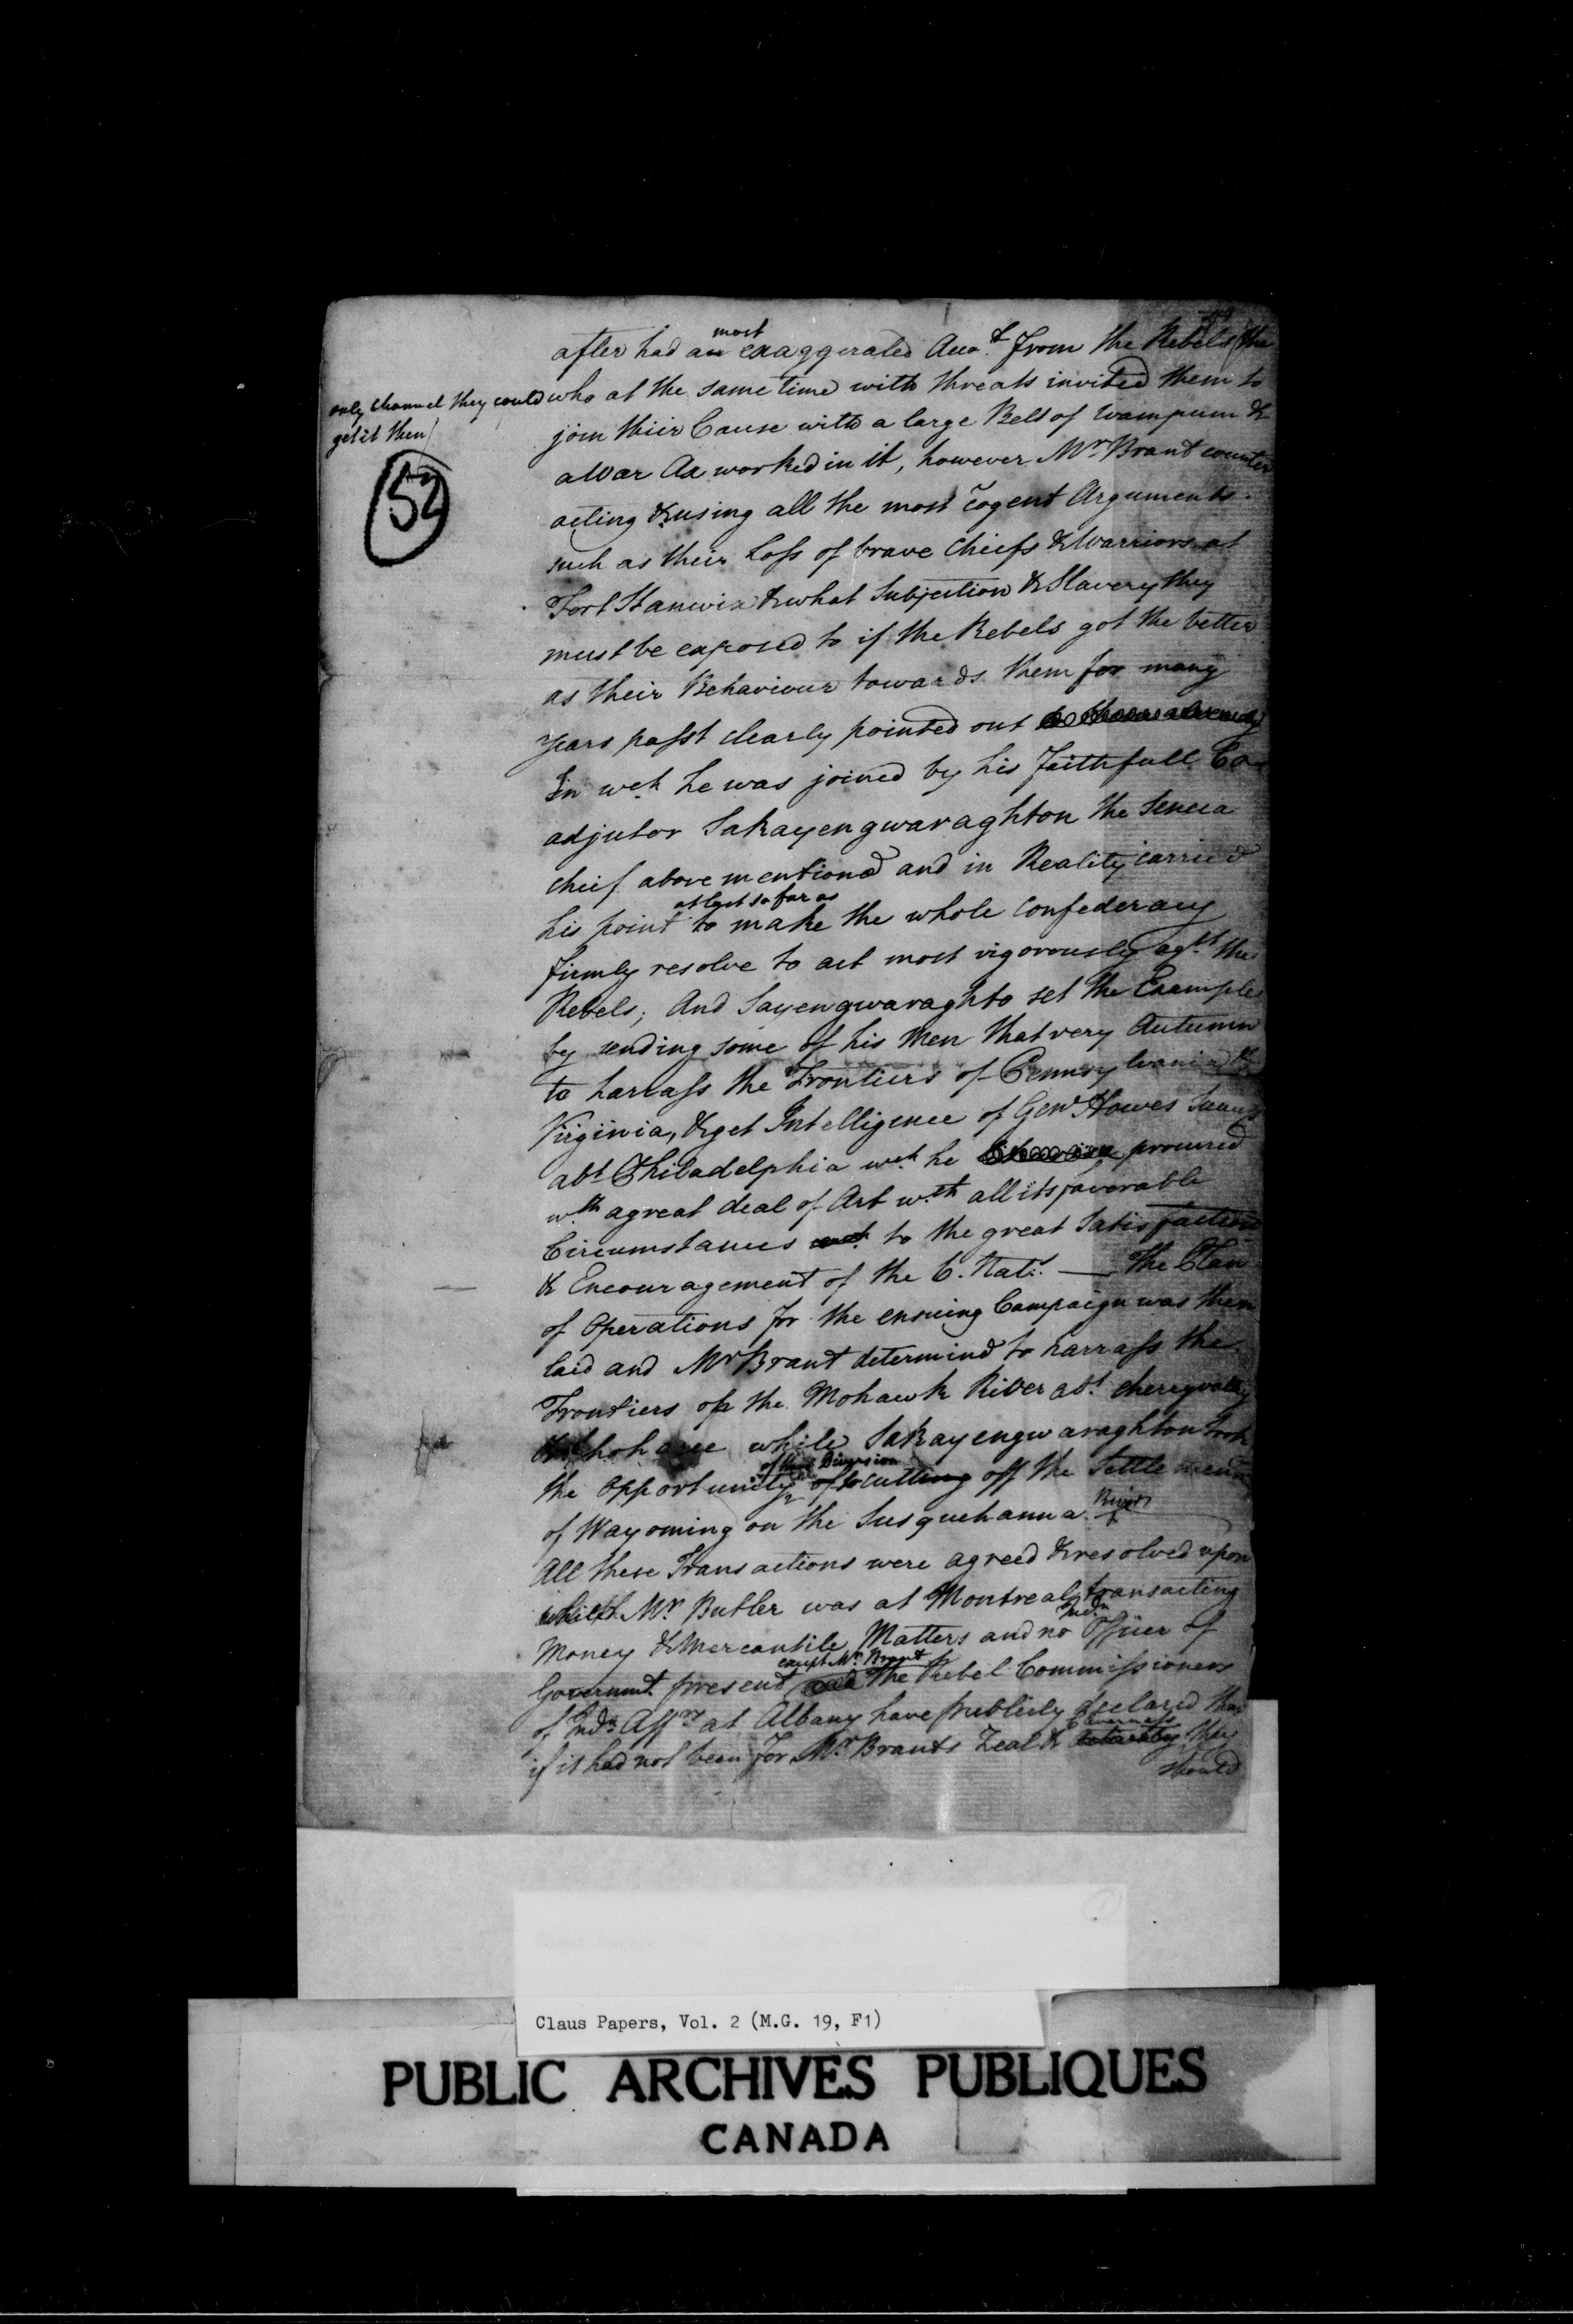 after had a most exaggerated Accot. from the Rebels (the
only channel they could
get it then)
52
who at the same time with threats invited them to
join their Cause with a large Belt of Wampum &
a War Ax worked in it, however Mr. Brant counter
acting & using all the most cogent Arguments
such as their Loss of brave Chiefs & Warriors at
Fort Stanwix & what Subjection & Slavery they
must be exposed to if the Rebels got the better
as their Behaviour towards them for many
years passt clearly pointed out
In wch. he was joined by his faithfull Co
adjutor Sakayengwaraghton the Seneca
cheif above mentiond and in Reality carried
his point at last so far as to make the whole confederacy
firmly resolve to act most vigorously agst. the
Rebels; And Sayengwaraghto set the Example
by sending some of his Men that very Autumn
to harrass the Frontiers of Pennsylvania &
Virginia, & get Intelligence of Genl Howes Success
abt Philadelphia wch. he procured
wth. a great deal of Art wth. all its favorable
Circumstances to the great Satisfaction
& Encouragement of the 6. Nats. — The Plan
of Operations for the ensuing Campaign was then
laid and Mr Brant determind to harrass the
Frontiers of the Mohawk River abt. cherryvalley
& Schoharee while Sakayengwaraghton took
the opportunity of this Diversion of to cutting off the Settlement
of Wayoming on the Susquehanna River
All these Transactions were agreed & resolved upon
whilst Mr. Butler was at Montreal transacting
Money & Mercantile Matters and no Indn. Officer of
Governmt. present except Mr. Brant and The Rebel Commissioners
of Indn. Affrs. at Albany have publicly declared that
if it had not been for Mr. Brants Zeal & Cleverness they
should
Claus Papers, Vol. 2 (M.G. 19, F1)
PUBLIC ARCHIVES PUBLIQUES
CANADA